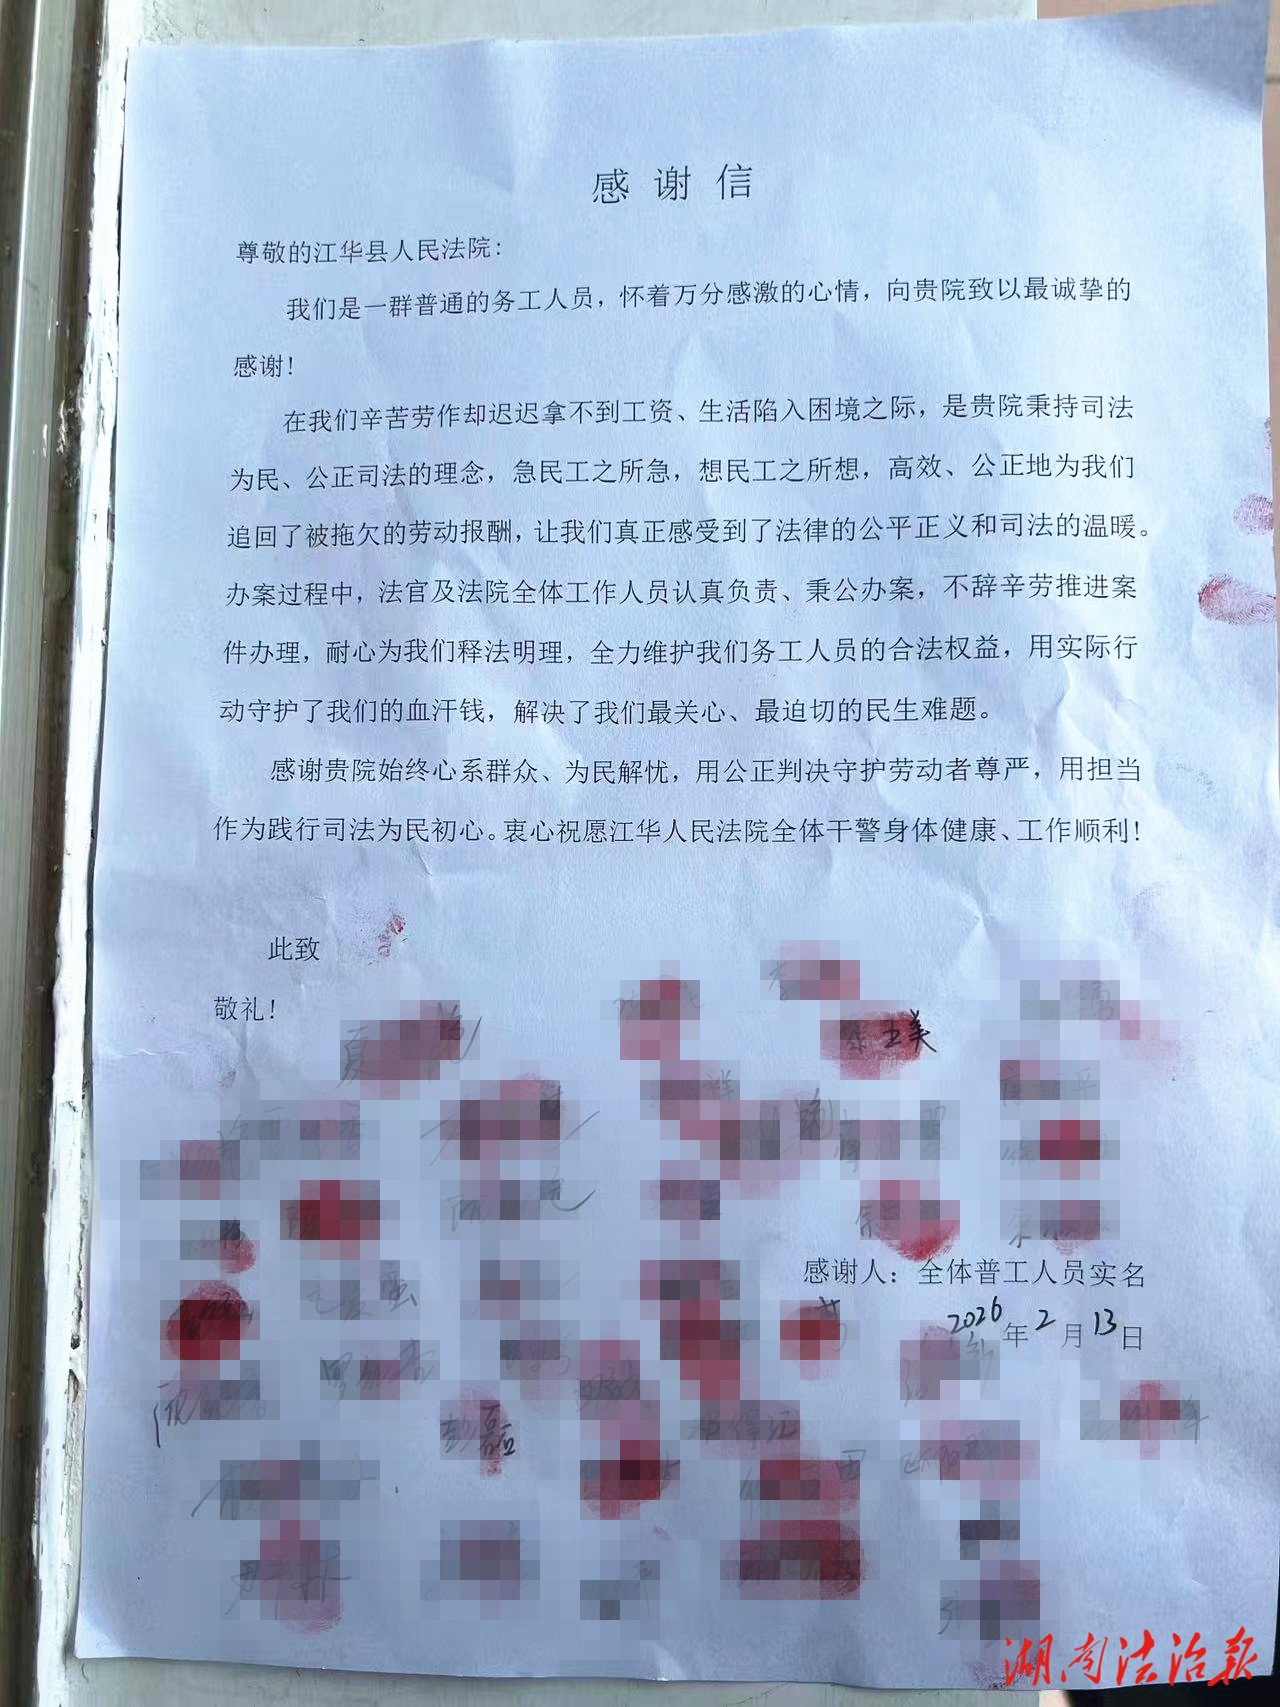 感谢信
尊敬的江华县人民法院:
我们是一群普通的务工人员，怀着万分感激的心情，向贵院致以最诚挚的
感谢!
在我们辛苦劳作却迟迟拿不到工资、生活陷入困境之际，是贵院秉持司法
为民、公正司法的理念，急民工之所急，想民工之所想，高效、公正地为我们
追回了被拖欠的劳动报酬，让我们真正感受到了法律的公平正义和司法的温暖。
办案过程中，法官及法院全体工作人员认真负责、秉公办案，不辞辛劳推进案
件办理，耐心为我们释法明理，全力维护我们务工人员的合法权益，用实际行
动守护了我们的血汗钱，解决了我们最关心、最迫切的民生难题。
感谢贵院始终心系群众、为民解忧，用公正判决守护劳动者尊严，用担当
作为践行司法为民初心。衷心祝愿江华人民法院全体干警身体健康、工作顺利!
此致
敬礼!
感谢人：全体普工人员实名
2026年2月13日
湖南法治报